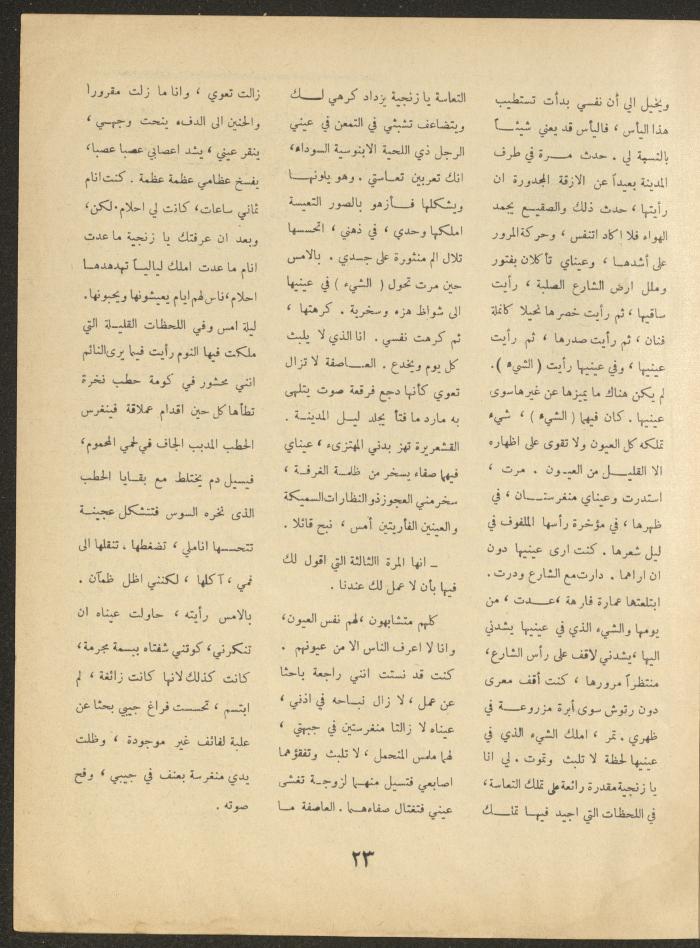 ويخيل الي أن نفسي بدأت تستطيب
هذا اليأس ، فاليأس قد يعني شيئـــاً
بالنسبة لي . حدث مـــرة في طرف
المدينة بعيداً عن الازقة المجدورة ان
رأيتها ، حدث ذلك والصقيــع يجمد
الهواء فلا اكاد اتنفس ، وحركة المرور
على أشدهـــا ، وعيناي تأكلان بفتور
وملل ارض الشارع الصلبة ، رأيت
ساقيها ، ثم رأيت خصرها نحيلا كأنملة
فنان ، ثم رأيت صدرها ، ثم رأيت
عينيها ، وفي عينيها رأيت ( الشيء ) .
لم يكن هناك ما يميزها عن غيرها سوى
عينيها . كان فيهما ( الشيء ) ، شيء
تملكه كل العيون ولا تقوى على اظهاره
الا القليــل من العيــون . مرت ،
استدرت وعيناي منغرستـــان ، في
ظهرها ، في مؤخرة رأسها الملفوف في
ليل شعرها . كنت ارى عينيها دون
ان اراهما . دارت مع الشارع ودرت .
ابتلعتها عمارة فارهة ، عــدت ، من
يومها والشيء الذي في عينيها يشدني
اليها ، يشدني لاقف على رأس الشارع،
منتظراً مرورها ، كنت أقف معرى
دون رتوش سوى أبرة مزروعـــة في
ظهري . تمر ، املك الشيء الذي في
عينيها لحظة لا تلبث وتموت . لي انا
يا زنجية مقدرة رائعة على تملك التعاسة،
في اللحظات التي اجيد فيهــا تملـــك
التعاسة يا زنجية يزداد كرهي لـــك
ويتضاعف تشبثي في التمعن في عيني
الرجل ذي اللحية الابنوسية السوداء،
انك تعربين تعــاستي . وهو يلونهــا
ويشكلها فـــأزهو بالصور التعيسة
املكها وحدي ، في ذهني ، اتحسسها
تلال الم منثورة على جسدي . بالامس
حين مرت تحول ( الشيء ) في عينيها
الى شواظ هزء وسخرية . كرهتها ،
ثم كرهت نفسي . انا الذي لا يلبث
كل يوم ويخدع . العــاصفة لا تزال
تعوي كأنها دجع فرقعة صوت يتلهى
به مارد ما فتأ يجلد ليــل المدينــة .
القشعريرة تهز بدني المهتزىء ، عيناي
فيهما صفاء يسخر من ظلمــة الغرفــة ،
سخر مني العجوز ذو النظارات السميكة
والعينين الفأريتين أمس ، نبح قائلا .
ــ انها المرة الثالثة التي اقول لك
فيها بأن لا عمل لك عندنا .
كلهم متشابهون ، لهم نفس العيون،
وانا لا اعرف الناس الا من عيونهم .
كنت قد نسيت انني راجعة باحثا
عن عمل ، لا زال نبــاحه في اذني ،
عيناه لا زالتا منغرستين في جبهتي ،
لهما ملمس المنحمل ، لا تلبث وتفقؤهما
اصابعي فتسيل منهمــا لزوجــة تغشى
عيني فتغتال صفاءهمــا . العاصفة مــا
زالت تعوي ، وانا ما زلت مقرورا
والحنين الى الدفء ينحت وجهــي ،
ينقر عيني ، يشد اعصابي عصبا عصبا،
يفسخ عظامي عظمة عظمة . كنت انام
ثماني ساعات، كانت لي احلام . لكن،
وبعد ان عرفتك يا زنجية ما عدت
انام ما عدت املك لياليــاً تهدهدهــا
احلام ، ناس لهم ايام يعيشونها ويحبونها.
ليلة امس وفي اللحظات القليــلة التي
ملكت فيها النوم رأيت فيما يرى النائم
انني محشور في كومة حطب نخرة
تطأها كل حين اقدام عملاقة فينغرس
الحطب المدبب الجاف في لحمي المحموم،
فيسيل دم يختلط مع بقــايا الحطب
الذى نخره السوس فتتشكل عجينــة
تتحسسها اناملي ، تضغطها ، تنقلها الى
فمي ، آكلها ، لكنني اظل ظمآن .
بالامس رأيته ، حاولت عيناه ان
تنكرني، كوتني شفتاه ببسمة مجرمة،
كانت كذلك لانها كانت زائفة ، لم
ابتسم ، تحسست فراغ جيبي بحثا عن
علبة لفائف غير موجودة ، وظلت
يدي منغرسة بعنف في جيبي ، وفح
صوته .
٢٣